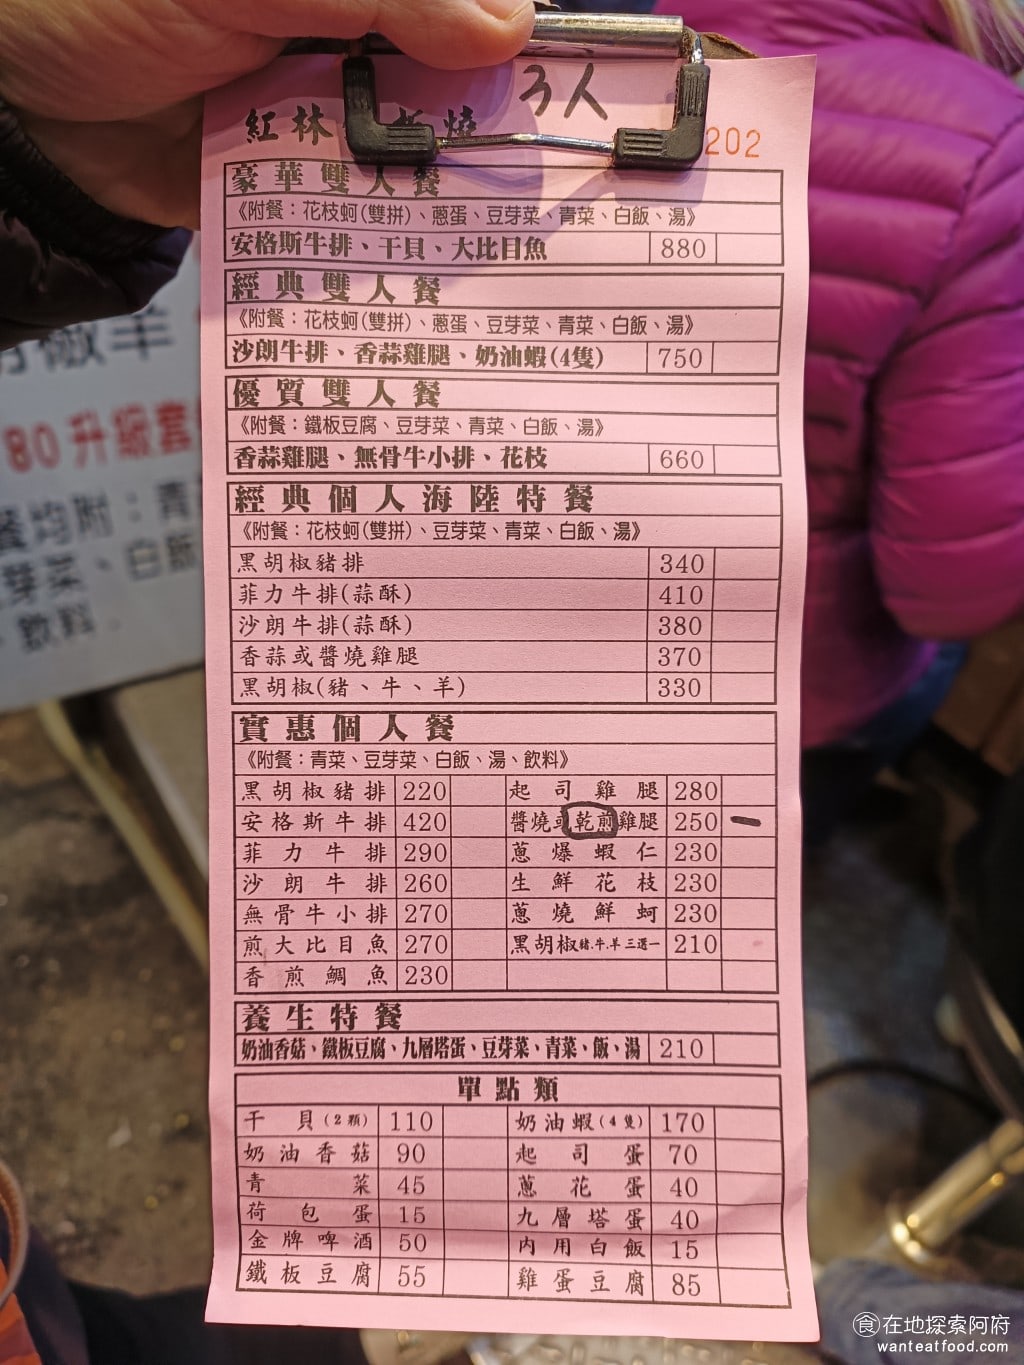 3人
紅林 板燒
202
豪華雙人餐
《附餐：花枝蚵(雙拼)、蔥蛋、豆芽菜、青菜、白飯、湯》
安格斯牛排、干貝、大比目魚 880
經典雙人餐
《附餐：花枝蚵(雙拼)、蔥蛋、豆芽菜、青菜、白飯、湯》
沙朗牛排、香蒜雞腿、奶油蝦(4隻) 750
優質雙人餐
《附餐：鐵板豆腐、豆芽菜、青菜、白飯、湯》
香蒜雞腿、無骨牛小排、花枝 660
經典個人海陸特餐
《附餐：花枝蚵(雙拼)、豆芽菜、青菜、白飯、湯》
黑胡椒豬排 340
菲力牛排(蒜酥) 410
沙朗牛排(蒜酥) 380
香蒜或醬燒雞腿 370
黑胡椒(豬、牛、羊) 330
實惠個人餐
《附餐：青菜、豆芽菜、白飯、湯、飲料》
黑胡椒豬排 220 起司雞腿 280
安格斯牛排 420 醬燒或乾煎雞腿 250 一
菲力牛排 290 蔥爆蝦仁 230
沙朗牛排 260 生鮮花枝 230
無骨牛小排 270 蔥燒鮮蚵 230
煎大比目魚 270 黑胡椒豬.牛.羊三選一 210
香煎鯛魚 230
養生特餐
奶油香菇、鐵板豆腐、九層塔蛋、豆芽菜、青菜、飯、湯 210
單點類
干貝(2顆) 110 奶油蝦(4隻) 170
奶油香菇 90 起司蛋 70
青菜 45 蔥花蛋 40
荷包蛋 15 九層塔蛋 40
金牌啤酒 50 內用白飯 15
鐵板豆腐 55 雞蛋豆腐 85
椒羊
80升級套
餐均附：青
豆芽菜、白飯
飲料.
食在地探索阿府
wanteatfood.com